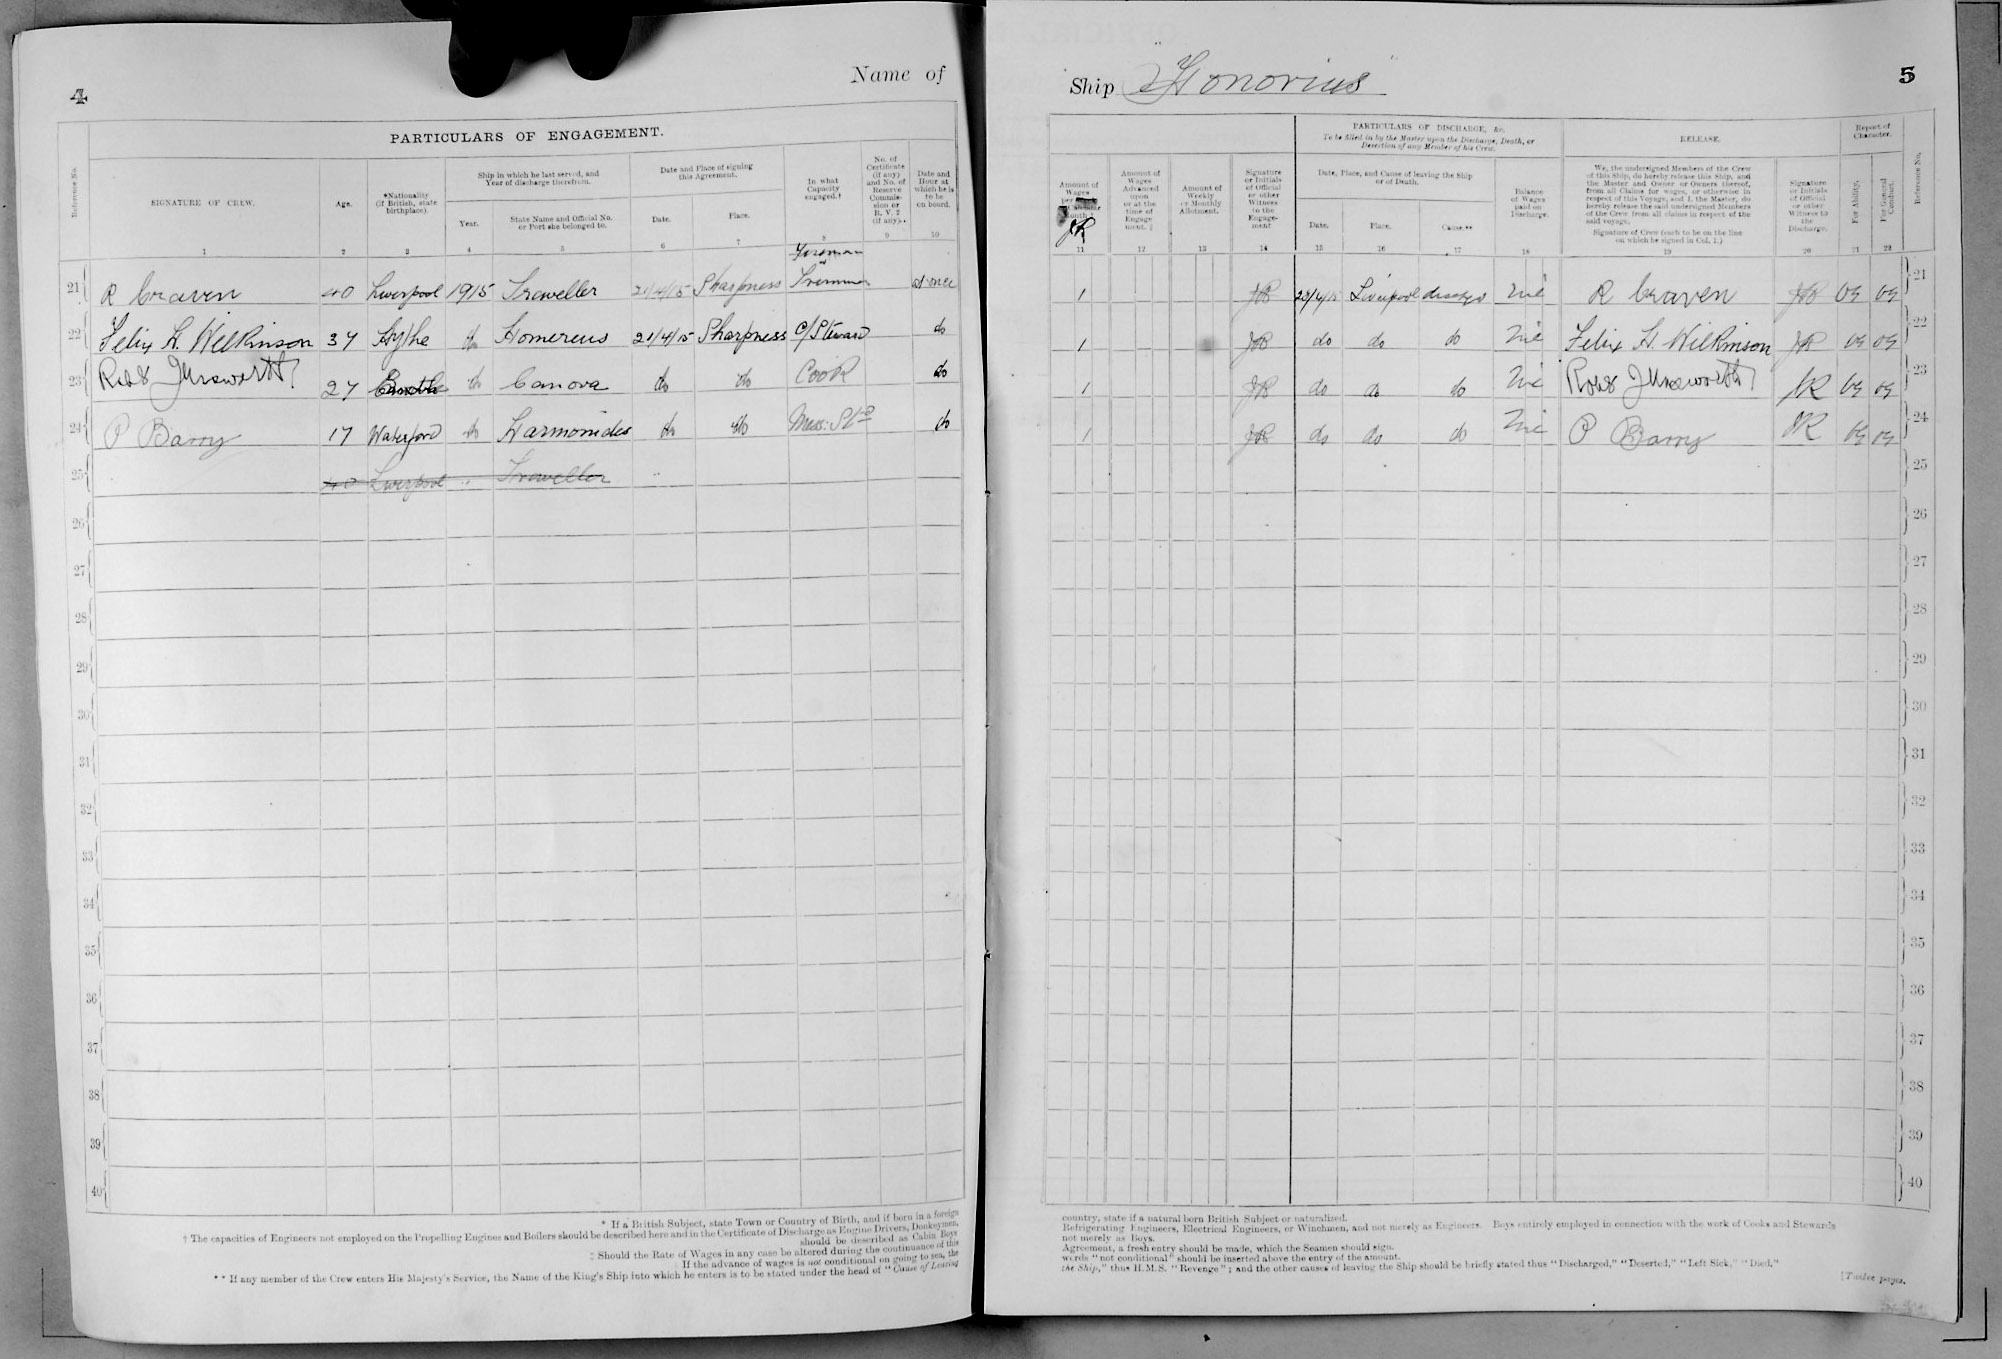 4
Name of
PARTICULARS OF ENGAGEMENT.
Reference No.
SIGNATURE OF CREW.
Age.
*Nationality
(If British, state
birthplace).
Ship in which he last served, and
Year of discharge therefrom.
Year.
State Name and Official No.
or Port she belonged to.
Date and Place of signing
this Agreement.
Date.
Place.
In what
Capacity
engaged.†
No. of
Certificate
(if any)
and No. of
Reserve
Commis-
sion or
R. V. 2
(if any).
Date and
Hour at
which he is
to be
on board.
1 2 3 4 5 6 7 8 9 10
21 R Craven 40 Liverpool 1915 Traveller 21/4/15 Sharpness Fireman Trimmer at once
22 Felix H. Wilkinson 37 Hythe do Homereus 21/4/15 Sharpness C/Steward do
23 27 do Canova do do Cook do
24 P Barry 17 Waterford do Harmonides do do Mess: Std do
25 40 Liverpool " Traveller "
26
27
28
29
30
31
32
33
34
35
36
37
38
39
40
* If a British Subject, state Town or Country of Birth, and if born in a foreign
† The capacities of Engineers not employed on the Propelling Engines and Boilers should be described here and in the Certificate of Discharge as Engine Drivers, Donkeymen,
should be described as Cabin Boys
‡ Should the Rate of Wages in any case be altered during the continuance of this
If the advance of wages is not conditional on going to sea, the
** If any member of the Crew enters His Majesty's Service, the Name of the King's Ship into which he enters is to be stated under the head of "Cause of Leaving
Ship Honorius
5
Amount of
Wages
per
Month
JR
Amount of
Wages
Advanced
upon
or at the
time of
Engage
ment. ‡
Amount of
Weekly
or Monthly
Allotment.
Signature
or Initials
of Official
or other
Witness
to the
Engage-
ment
PARTICULARS OF DISCHARGE, &c.
To be filled in by the Master upon the Discharge, Death, or
Desertion of any Member of his Crew.
Date, Place, and Cause of leaving the Ship
or of Death.
Date.
Place.
Cause.**
Balance
of Wages
paid on
Discharge.
RELEASE.
We, the undersigned Members of the Crew
of this Ship, do hereby release this Ship, and
the Master and Owner or Owners thereof,
from all Claims for wages, or otherwise in
respect of this Voyage, and I, the Master, do
hereby release the said undersigned Members
of the Crew from all claims in respect of the
said voyage.
Signature of Crew (each to be on the line
on which he signed in Col. 1.)
Signature
or Initials
of Official
or other
Witness to
the
Discharge.
Report of
Character.
For Ability.
For General
Conduct.
Reference No.
11 12 13 14 15 16 17 18 19 20 21 22
1 JR 23/4/15 Liverpool Nil R Craven JR VG VG 21
1 JR do do do Nil Felix H. Wilkinson JR VG VG 22
1 JR do do do Nil JR VG VG 23
1 JR do do do Nil P Barry JR VG VG 24
25
26
27
28
29
30
31
32
33
34
35
36
37
38
39
40
country, state if a natural born British Subject or naturalized.
Refrigerating Engineers, Electrical Engineers, or Winchmen, and not merely as Engineers. Boys entirely employed in connection with the work of Cooks and Stewards
not merely as Boys.
Agreement, a fresh entry should be made, which the Seamen should sign.
words "not conditional" should be inserted above the entry of the amount.
the Ship," thus H.M.S. "Revenge"; and the other causes of leaving the Ship should be briefly stated thus "Discharged," "Deserted," "Left Sick," "Died,"
[Twelve pages.